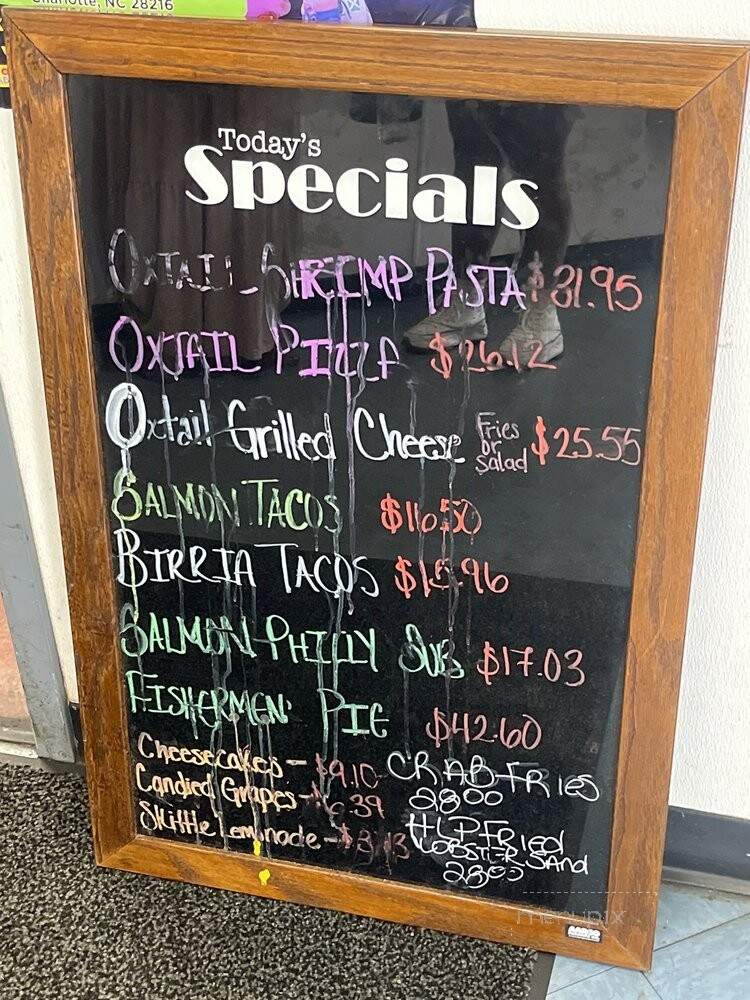 Charlotte, NC 28216
Today's
Specials
OXTAIL SHRIMP PASTA $31.95
OXTAIL PIZZA $26.12
Oxtail Grilled Cheese Fries or Salad $25.55
SALMON TACOS $16.50
BIRRIA TACOS $15.96
SALMON PHILLY SUB $17.03
FISHERMEN' PIE $42.60
Cheesecakes - $9.10
Candied Grapes - $6.39
Skittle Lemonade -
CRAB FRIES
28.00
Fried
LOBSTER SAND
28.00
menupix